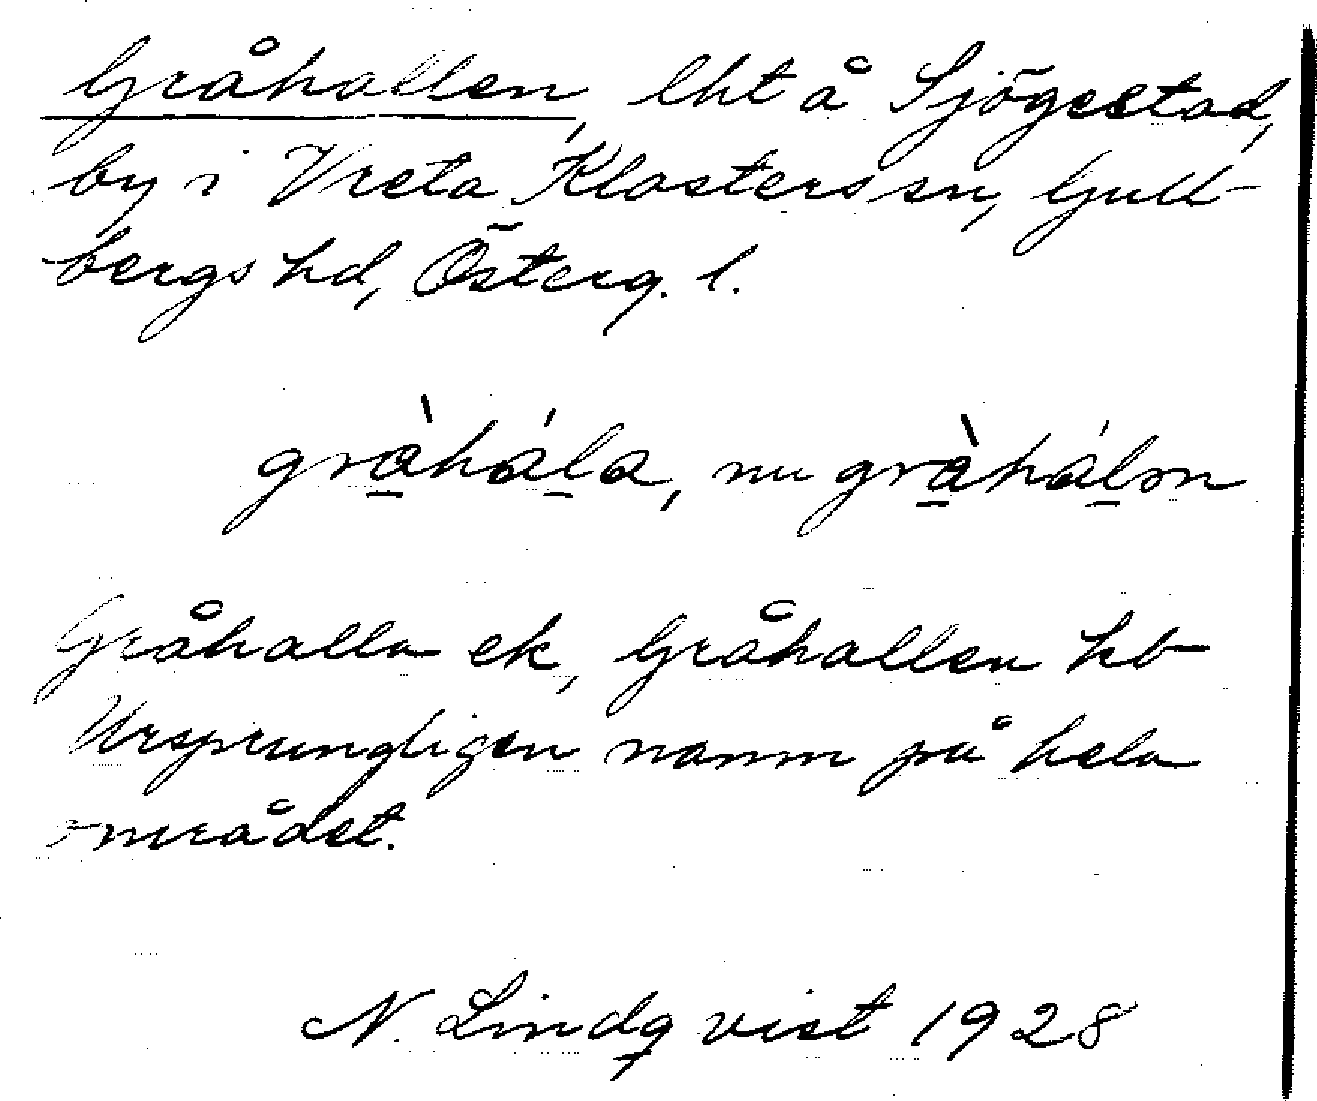 Gråhallen, lht å Sjögestad,
by i Vreta Klosters sn, Gull-
bergs hd, Österg. l.
gràhála, nu gràhálən
Gråhalla ek, Gråhallen kb
Ursprungligen namn på hela
området.
N. Lindqvist 1928